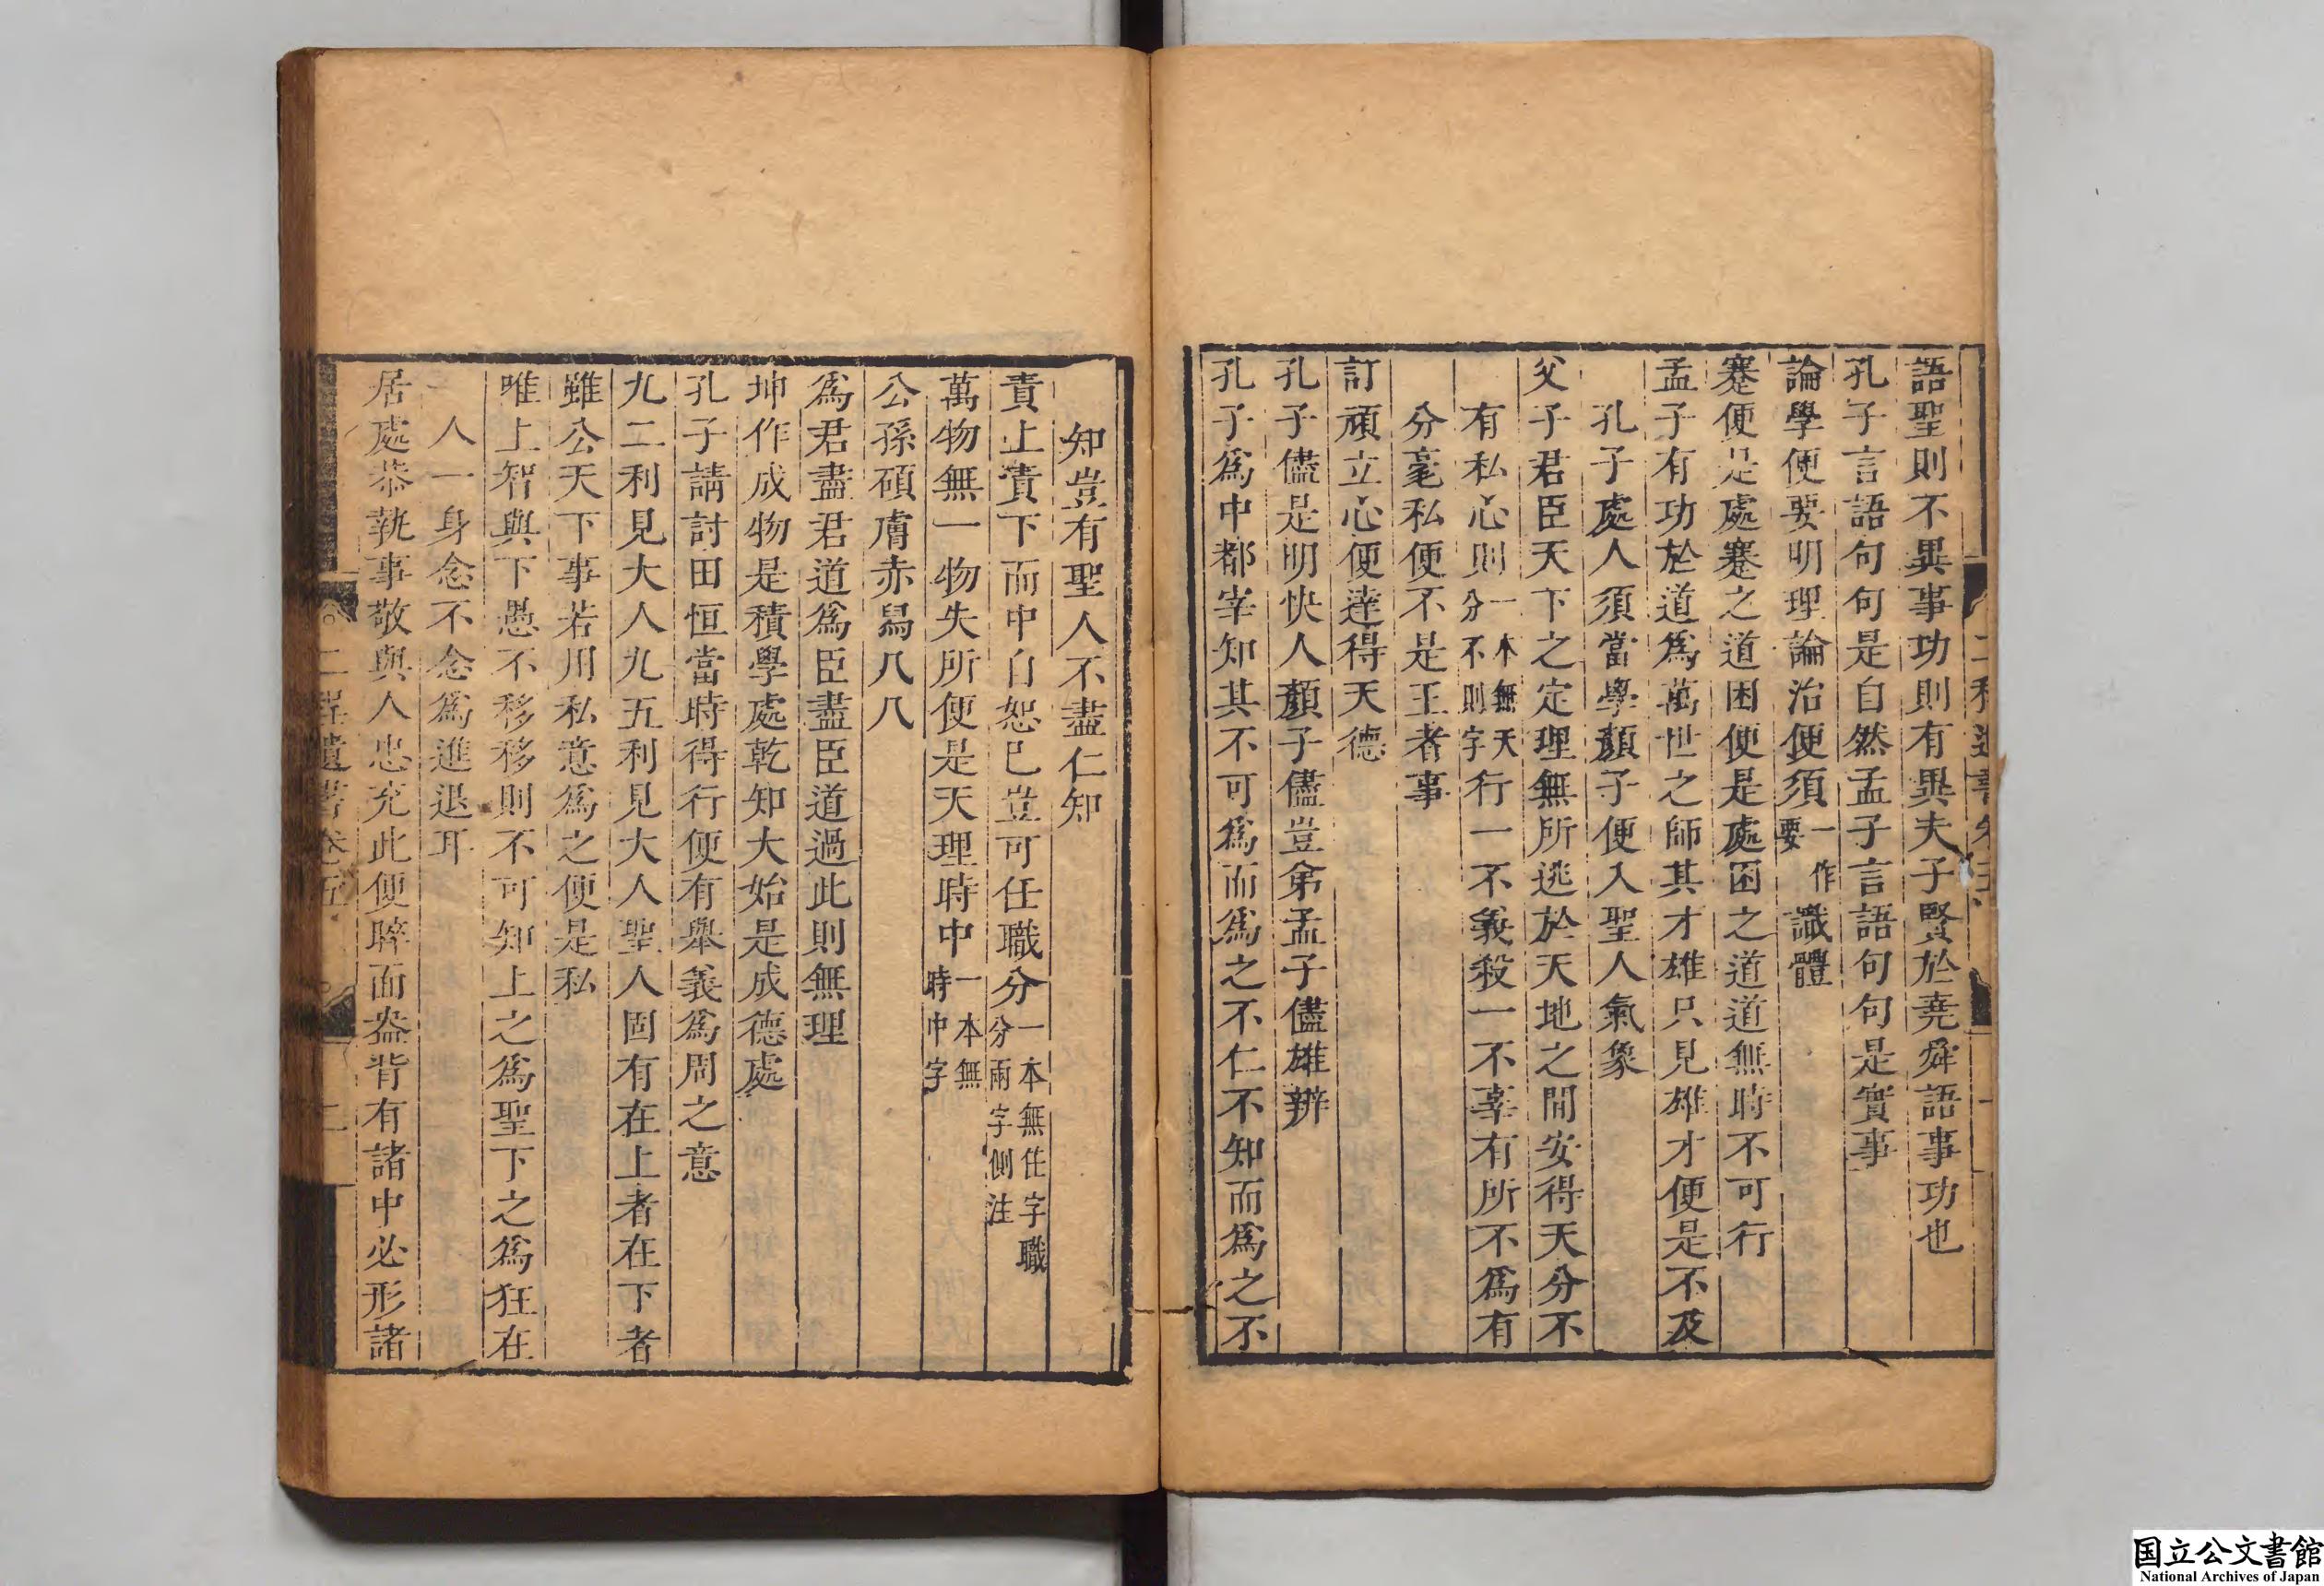 語聖則不異事功則有異夫子賢於堯舜語事功也
孔子言語句句是自然孟子言語句句是實事
論學便要明理論治便須一作要識體
蹇便是處蹇之道困便是處困之道道無時不可行
孟子有功於道爲萬世之師其才雄只見雄才便是不及
孔子處人須當學顏子便入聖人氣象
父子君臣天下之定理無所逃於天地之間安得天分不
有私心則一本無天分不則字行一不義殺一不辜有所不爲有
分毫私便不是王者事
訂頑立心便達得天德
孔子儘是明快人顏子儘豈弟孟子儘雄辨
孔子爲中都宰知其不可爲而爲之不仁不知而爲之不
知豈有聖人不盡仁知
責上責下而中自恕已豈可任職分一本無任字職分兩字側注
萬物無一物失所便是天理時中一本無時中字
公孫碩膚赤舄几几
爲君盡君君道爲臣盡臣道過此則無理
坤作成物是積學處乾知大始是成德處
孔子請討田恒當時得行便有舉義爲周之意
九二利見大人九五利見大人聖人固有在上者在下者
雖公天下事若用私意爲之便是私
唯上智與下愚不移移則不可知上之爲聖下之爲狂在
一人一身念不念爲進退耳
居處恭執事敬與人忠充此便睟面盎背有諸中必形諸
二程遺書卷五
二
国立公文書館
National Archives of Japan